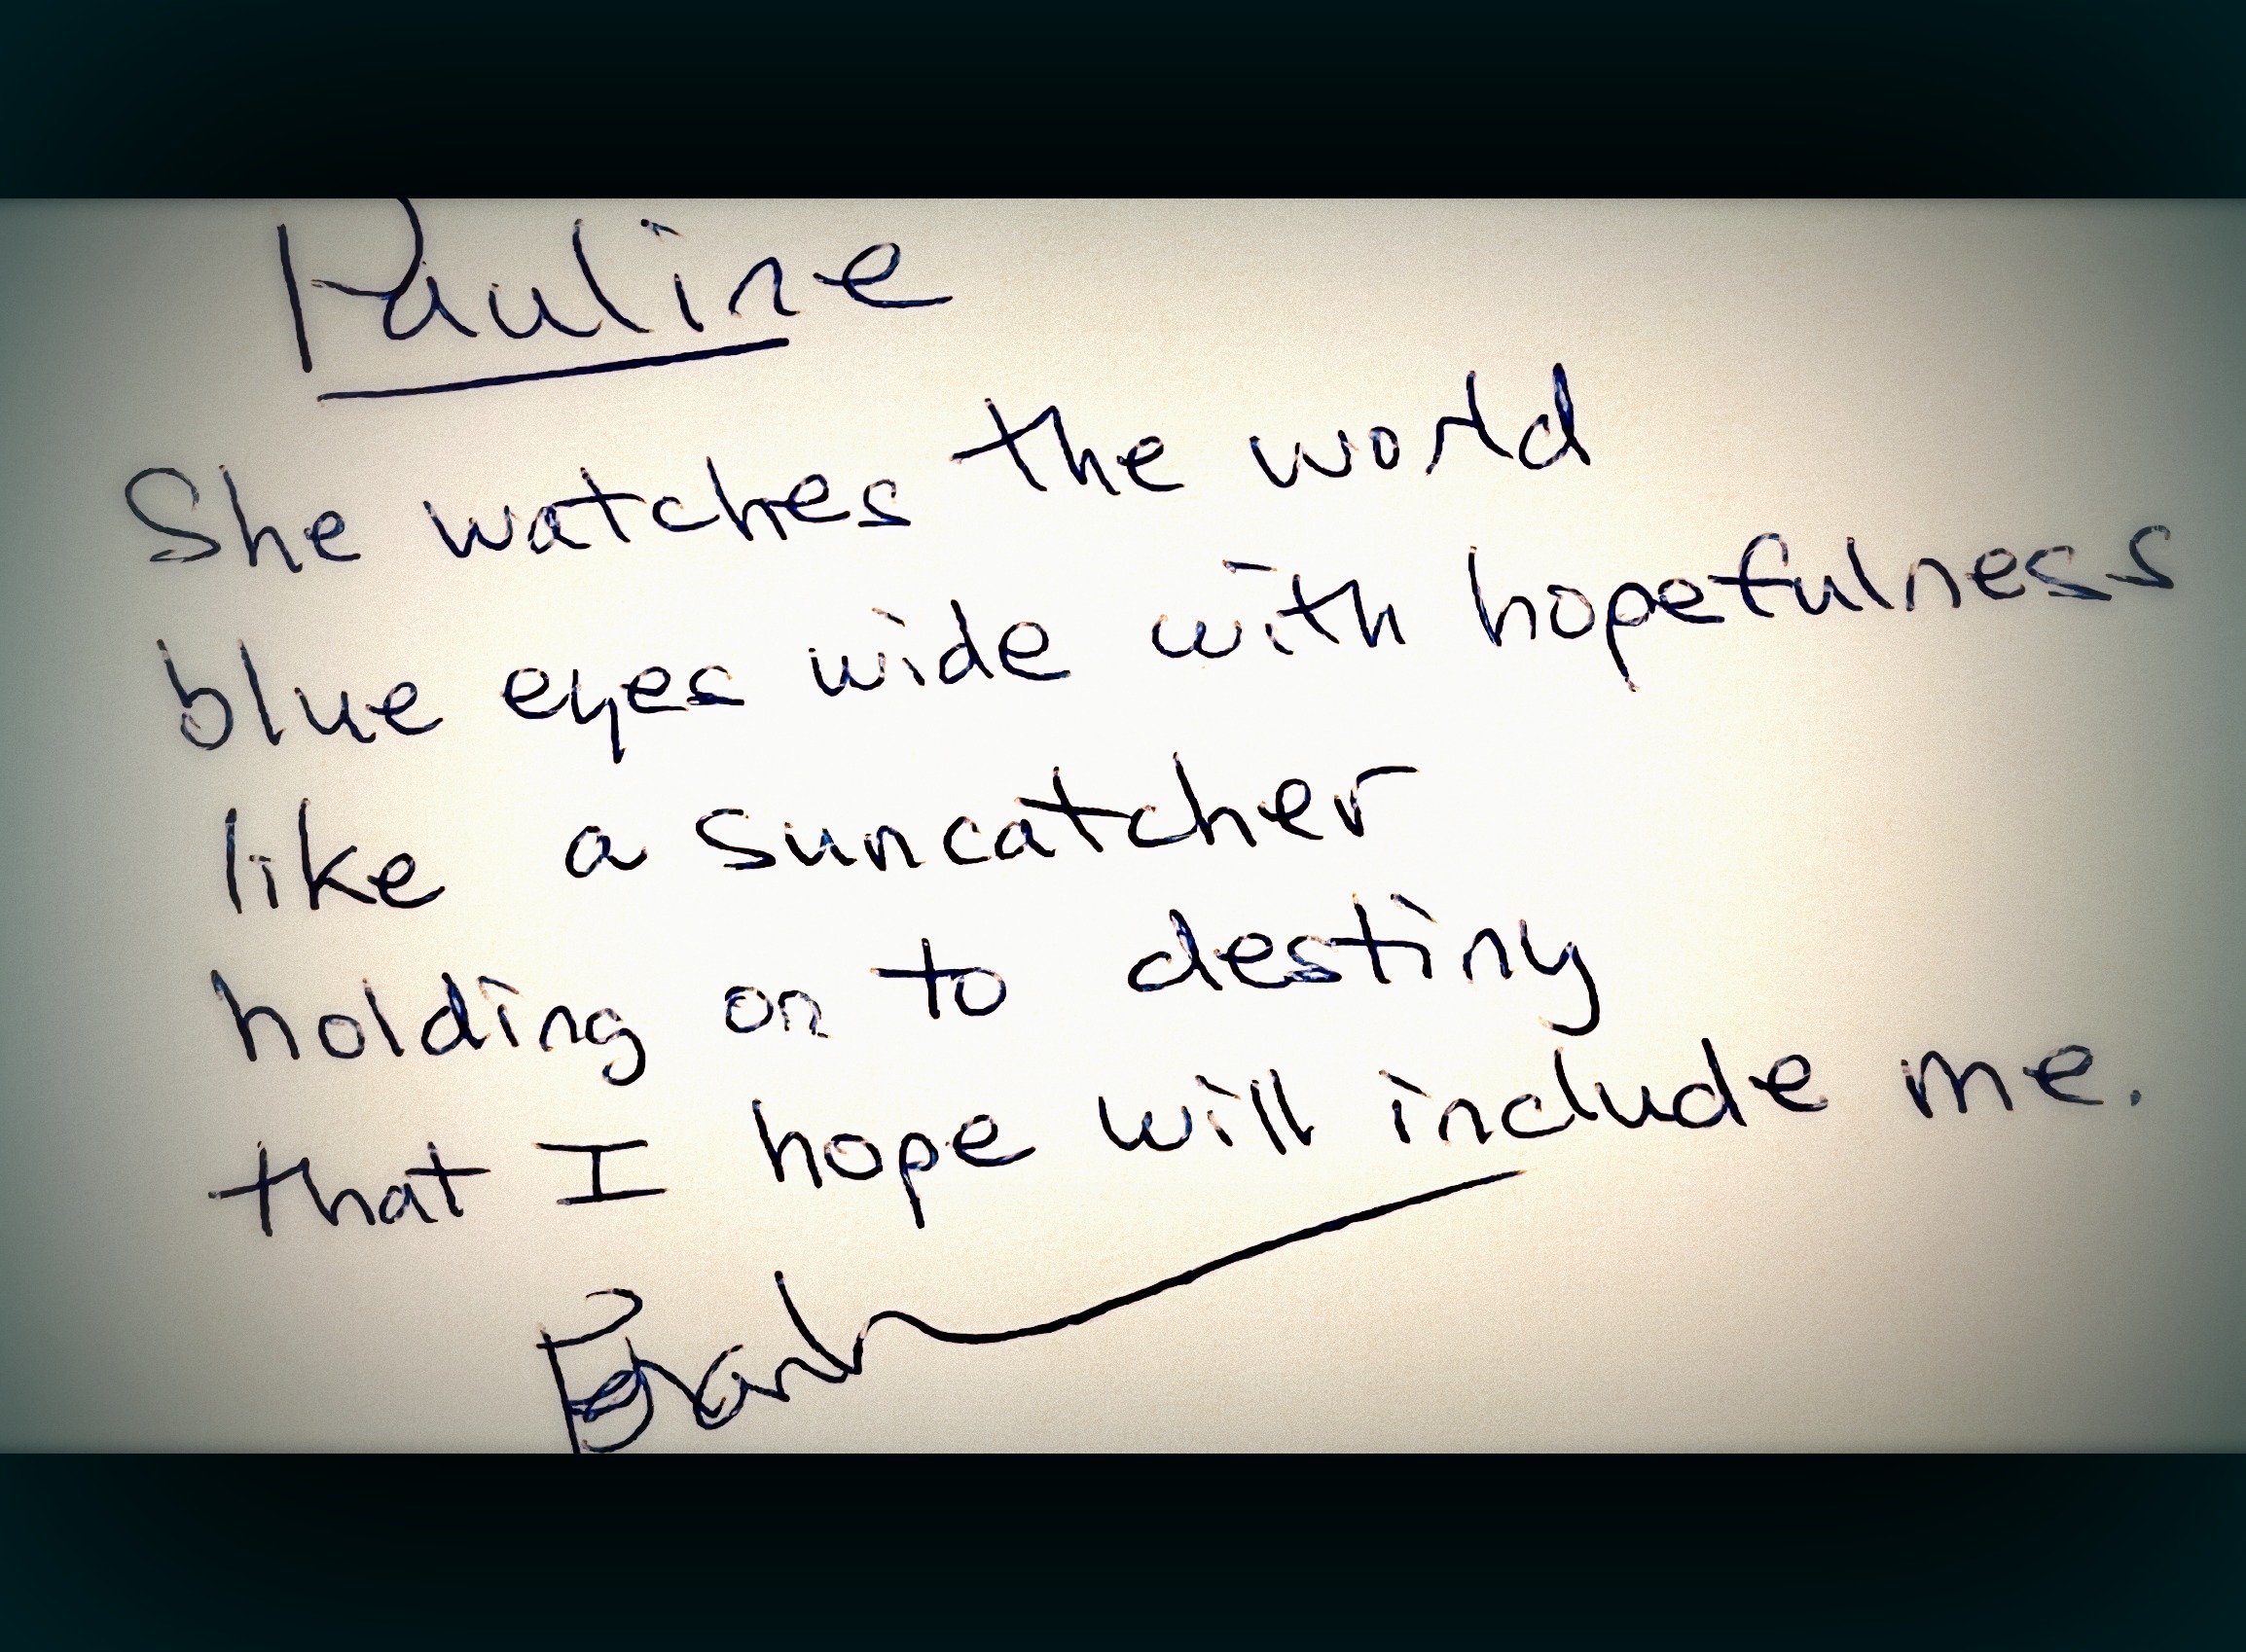 Pauline
She watches the world
blue eyes wide with hopefulness
like a suncatcher
holding on to destiny
that I hope will include me.